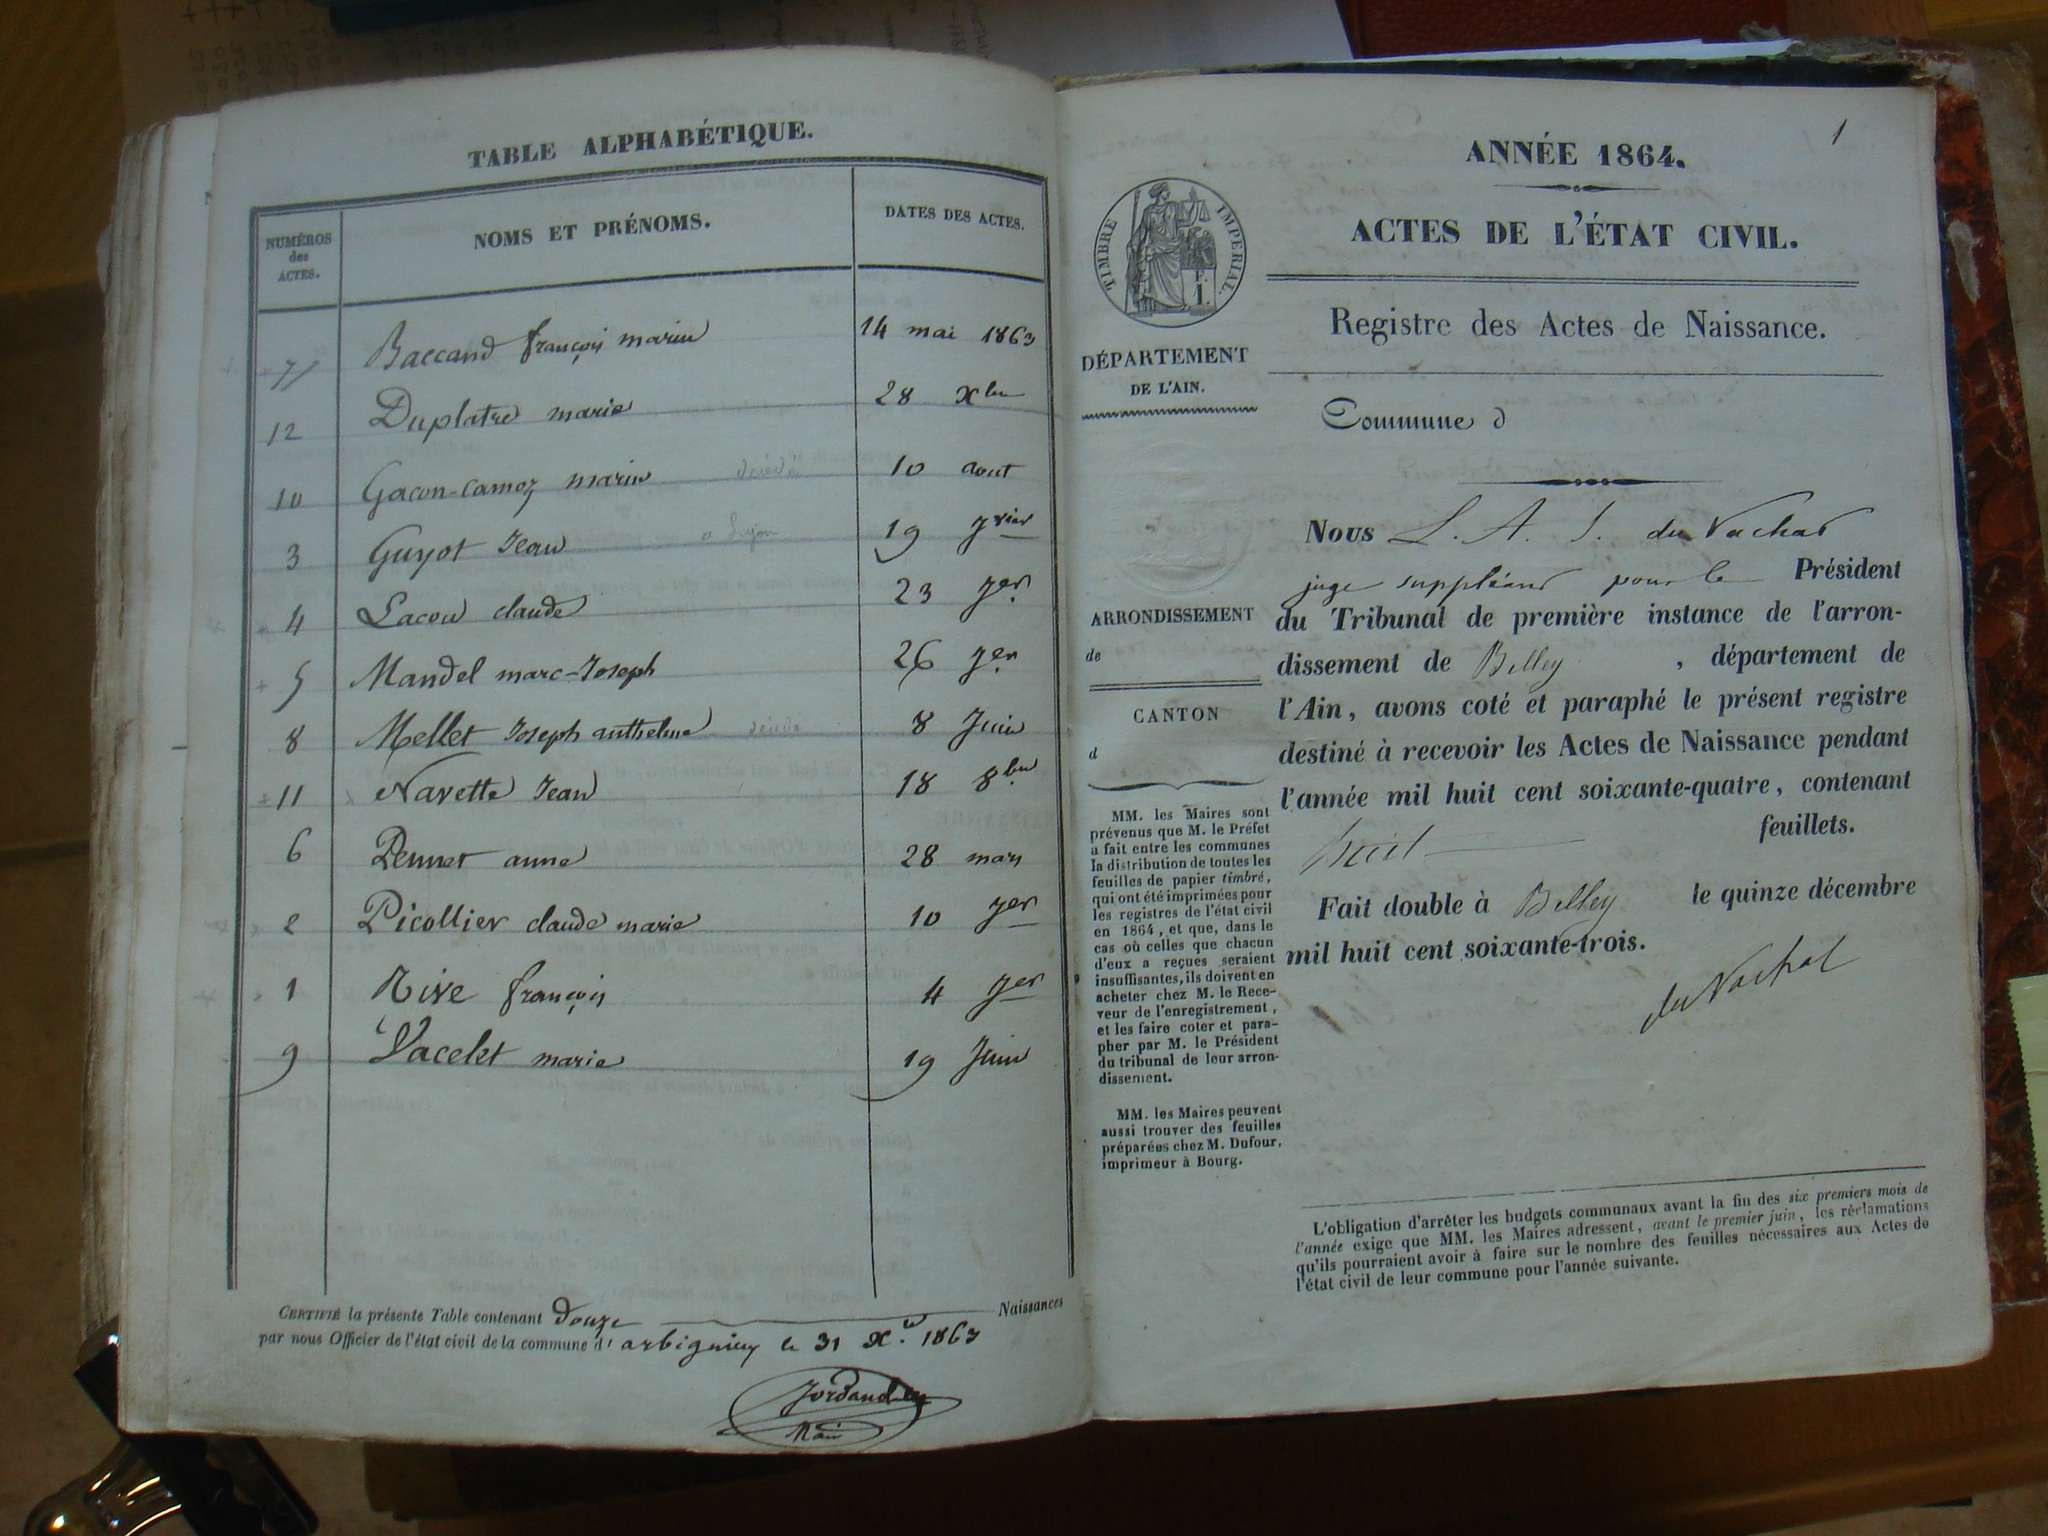 TABLE ALPHABÉTIQUE.
NUMÉROS des ACTES. NOMS ET PRÉNOMS. DATES DES ACTES.
7 Baccand françois marin 14 mai 1863
12 Duplatre marie 28 Xbre
10 Gacon-camoz marin décédé 10 aout
3 Guyot Jean a Lyon 19 Jvier
4 Lacou claude 23 Jer
5 Mandel marc-Joseph 26 Jer
8 Mellet Joseph anthelme décédé 8 Juin
11 Navette Jean 18 8bre
6 Pennet anne 28 mars
2 Picollier claude marie 10 Jer
1 Rive françois 4 Jer
9 Vacelet marie 19 Juin
CERTIFIÉ la présente Table contenant douze Naissances
par nous Officier de l'état civil de la commune d'arbignieu le 31 Xre 1863
Maire
1
ANNÉE 1864.
ACTES DE L'ÉTAT CIVIL.
Registre des Actes de Naissance.
TIMBRE IMPERIAL.
F. 1.
DÉPARTEMENT
DE L'AIN.
Commune d
ARRONDISSEMENT
de
CANTON
d
MM. les Maires sont
prévenus que M. le Préfet
a fait entre les communes
la distribution de toutes les
feuilles de papier timbré,
qui ont été imprimées pour
les registres de l'état civil
en 1864, et que, dans le
cas où celles que chacun
d'eux a reçues seraient
insuffisantes, ils doivent en
acheter chez M. le Rece-
veur de l'enregistrement,
et les faire coter et para-
pher par M. le Président
du tribunal de leur arron-
dissement.
MM. les Maires peuvent
aussi trouver des feuilles
préparées chez M. Dufour,
imprimeur à Bourg.
Nous L. A. J. du Vachat
juge suppléant pour le Président
du Tribunal de première instance de l'arron-
dissement de Belley, département de
l'Ain, avons coté et paraphé le présent registre
destiné à recevoir les Actes de Naissance pendant
l'année mil huit cent soixante-quatre, contenant
huit feuillets.
Fait double à Belley le quinze décembre
mil huit cent soixante-trois.
du Vachat
L'obligation d'arrêter les budgets communaux avant la fin des six premiers mois de
l'année exige que MM. les Maires adressent, avant le premier juin, les réclamations
qu'ils pourraient avoir à faire sur le nombre des feuilles nécessaires aux Actes de
l'état civil de leur commune pour l'année suivante.